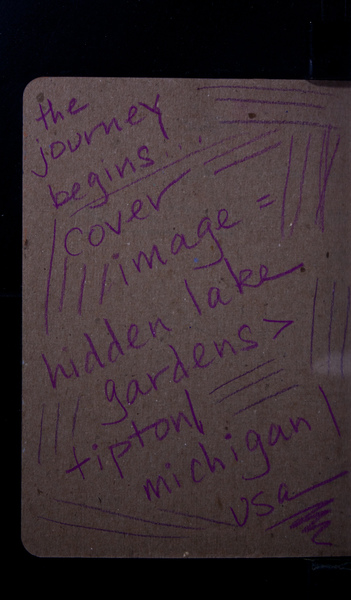 the
journey
begins...
cover
image =
hidden lake
gardens >
tipton
michigan
usa